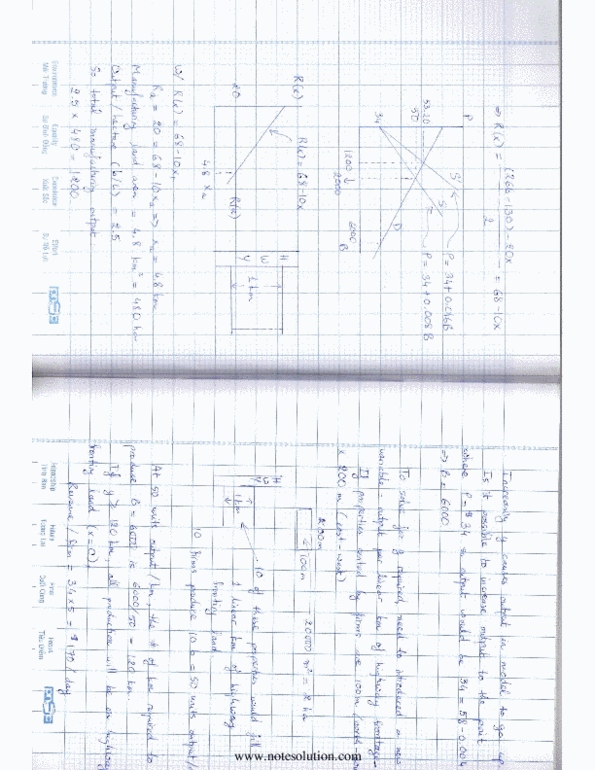 ⇒ R(x) = (266-130)-20x / 2 = 68-10x
P
53.20
50
34
S'
S
D
P = 34+0.016B
P = 34+0.008B
1200
2000
6000
B
R(x)
R(x) = 68-10x
20
R(x)
4.8
x₂
H
W
Y
1 km
w/ R(x) = 68-10x,
R₂ = 20 = 68-10x₂ ⇒ x₂ = 4.8 km
Manufacturing land area = 4.8 km² = 480 ha
Output / hectare (b/L) = 2.5
So total manufacturing output
2.5 x 480 = 1200.
Increasing y causes output in model to go up
Is it possible to increase output to the point
where P = $34 ⇒ output would be 34 = 58-0.004
⇒ B = 6000.
To solve for y required, need to introduced a new
variable - output per linear km of highway frontage
If properties rented by firms are 100m (north-
x 200 m (east-west)
200m
100m
20000 m² = 2 ha
H
W
Y
1 km
10 of these properties would fill
1 linear km of highway
fronting land.
10 firms produce 10.b = 50 units output/
At 50 units output / km, the # of km required to
produce B = 6000 is 6000/50 = 120 km.
If y ≥ 120 km, all production will be on highway
fronting land (x=0).
Revenue / firm = 34x5 = $170 / day
www.notesolution.com